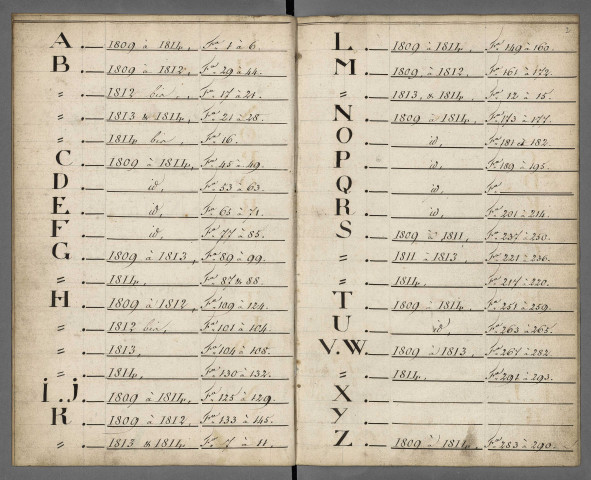 A. 1809 à 1814, Fos 1 à 6.
B. 1809 à 1812, Fos 29 à 44.
" 1812 bis, Fos 17 à 21.
" 1813 & 1814, Fos 21 à 28.
" 1814 bis, Fos 16.
C. 1809 à 1814, Fos 45 à 49.
D. id, Fos 53 à 63.
E. id, Fos 65 à 71.
F. id, Fos 77 à 85.
G. 1809 à 1813, Fos 89 à 99.
" 1814, Fos 87 & 88.
H. 1809 à 1812, Fos 109 à 124.
" 1812 bis, Fos 101 à 104.
" 1813, Fos 104 à 108.
" 1814, Fos 130 à 132.
I.J. 1809 à 1814, Fos 125 à 129.
K. 1809 à 1812, Fos 133 à 145.
" 1813 & 1814 Fos 7 à 11.
2
L. 1809 à 1814, Fos 149 à 160.
M. 1809 à 1812, Fos 161 à 172.
" 1813, & 1814, Fos 12 à 15.
N. 1809 à 1814, Fos 173 à 177.
O. id, Fos 181 et 182.
P. id, Fos 189 à 195.
Q. id, Fos
R. id, Fos 201 à 214.
S. 1809 à 1811, Fos 237 à 250.
" 1811 à 1813, Fos 221 à 236.
" 1814, Fos 217 à 220.
T. 1809 à 1814, Fos 251 à 259.
U. id Fos 263 à 265.
V.W. 1809 à 1813, Fos 267 à 282.
" 1814, Fos 291 à 293.
X.
Y.
Z. 1809 à 1814, Fos 283 à 290.